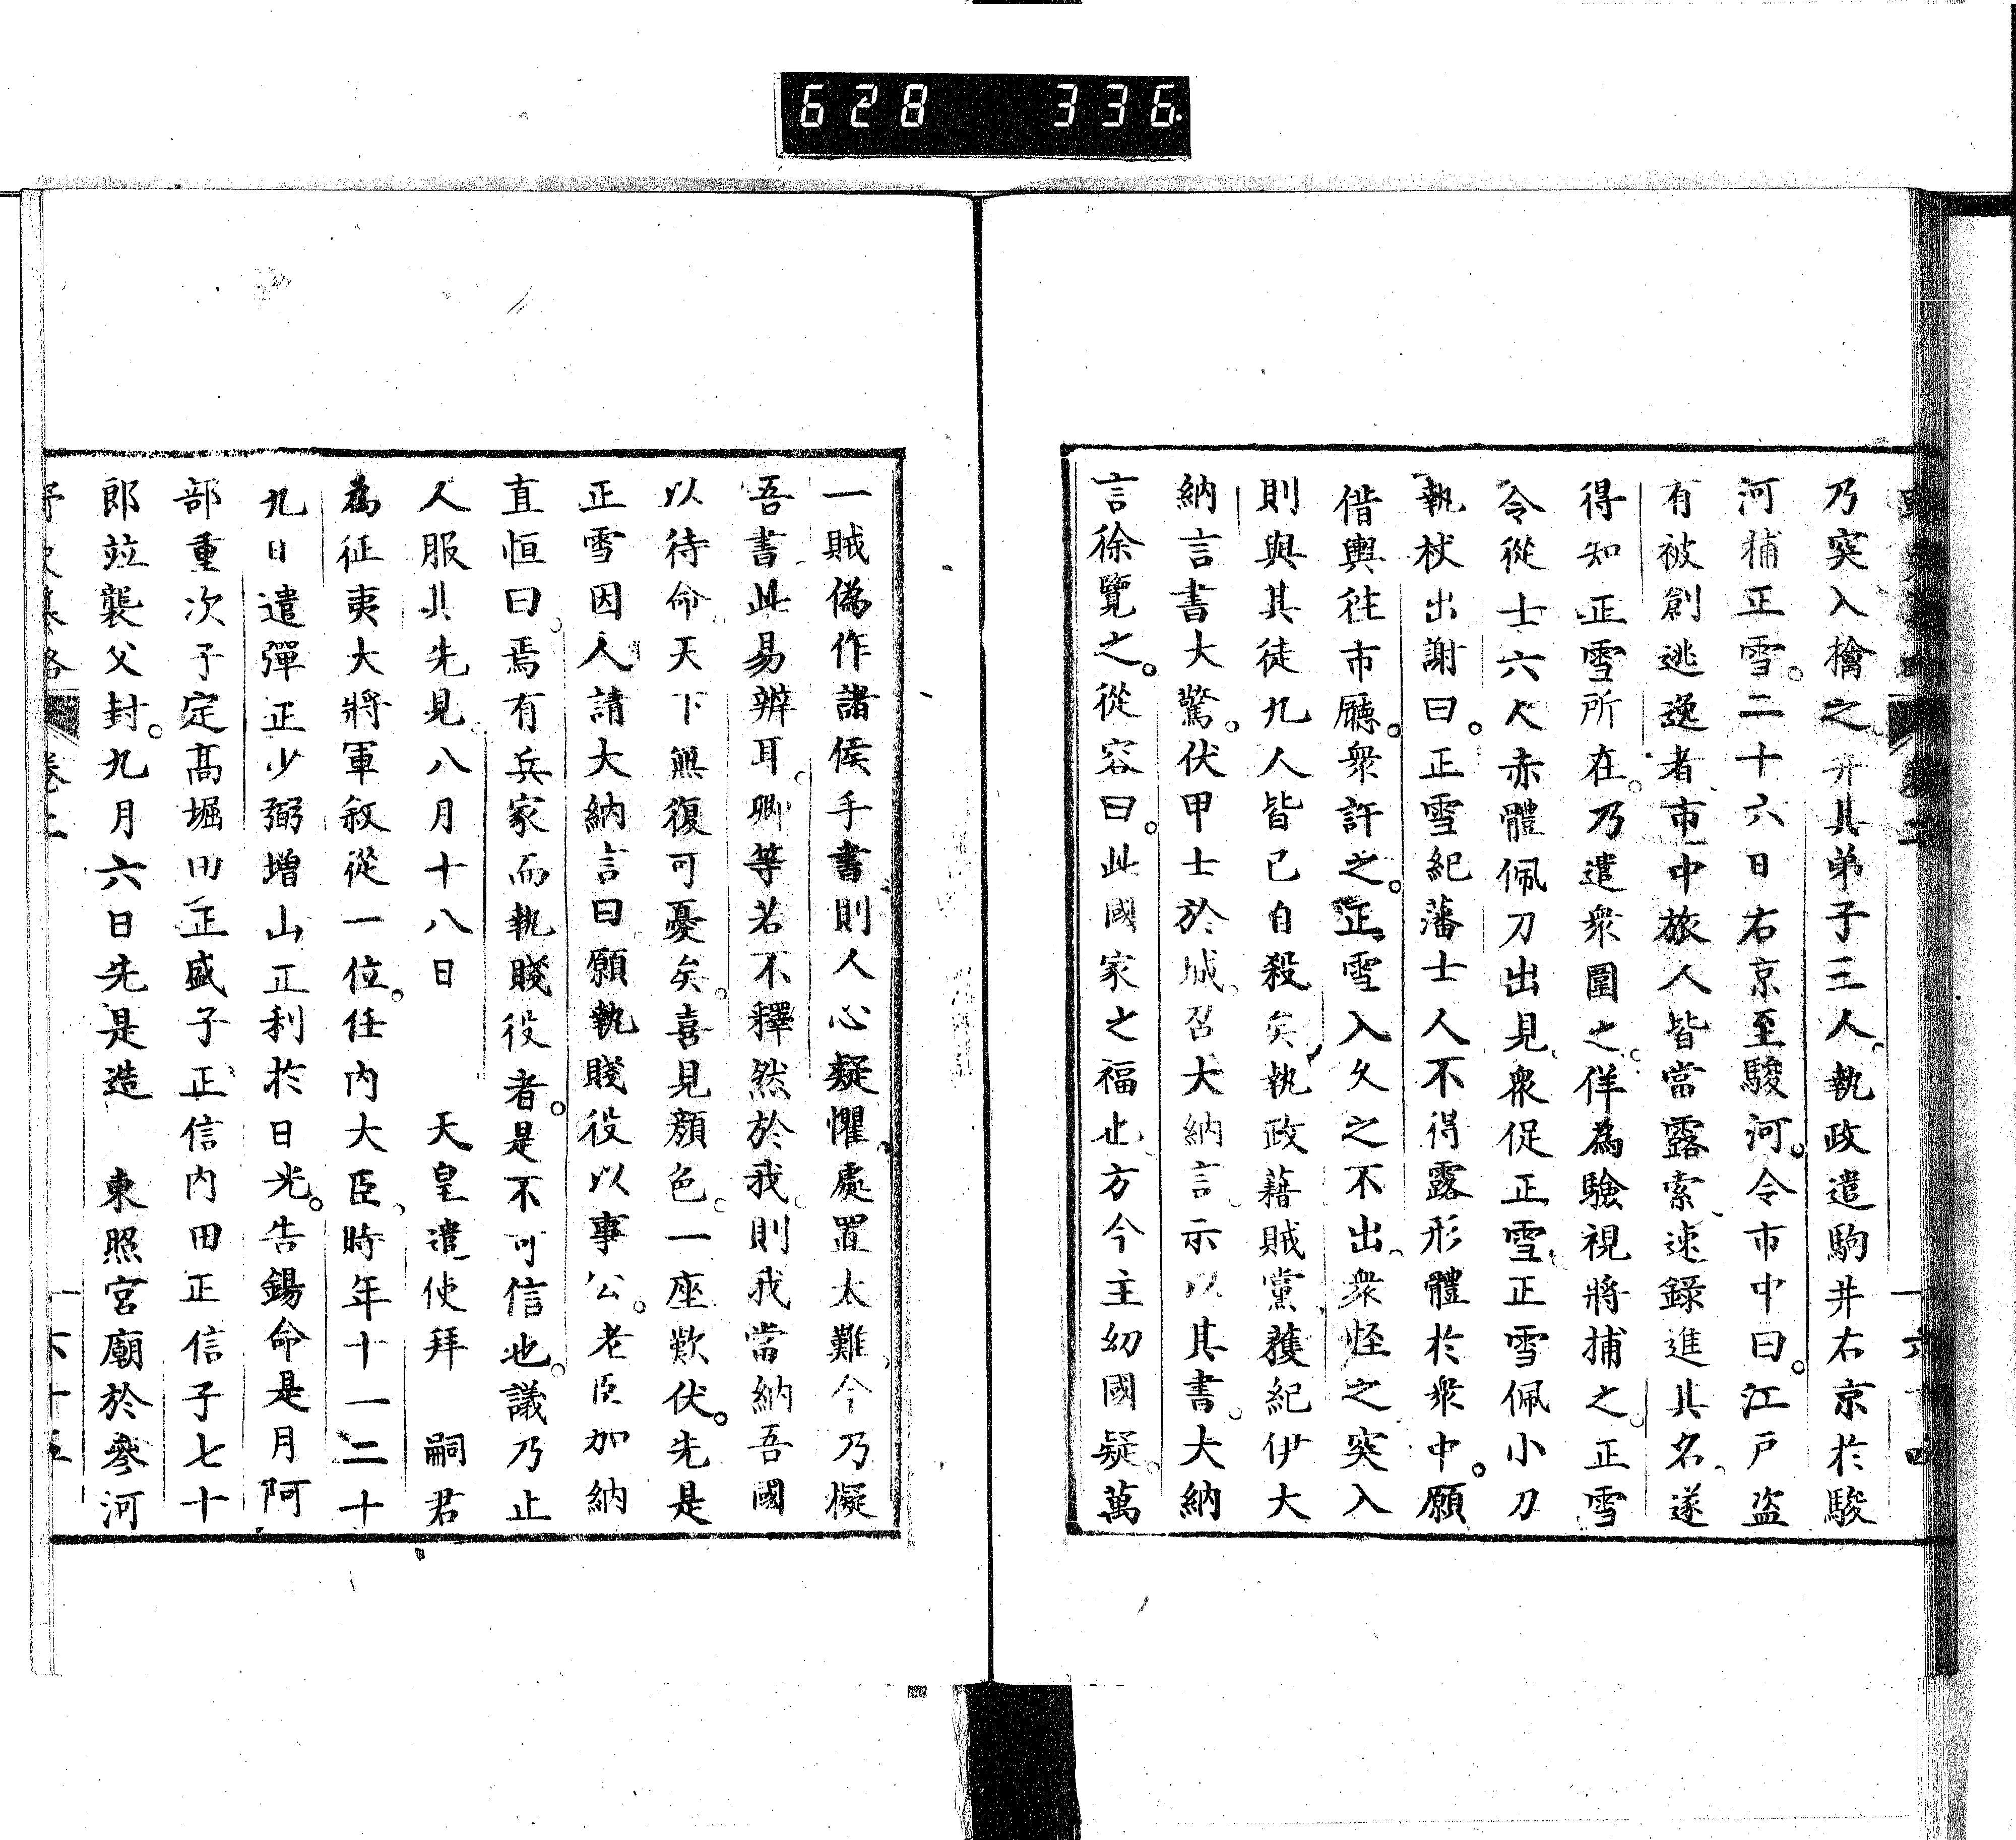 628 336
乃突入檎之并其弟子三人執政遣駒井右京於駿
河捕正雪。二十六日右京至駿河。令市中曰。江戸盗
有被創逃逸者市中旅人皆當露索速録進其名遂
得知正雪所在。乃遣衆圍之。佯為驗視將捕之。正雪
令從士六人赤體佩刀出見衆促正雪正雪佩小刀
執杖出謝曰。正雪紀藩士人不得露形體於衆中。願
借輿往市廳。衆許之。正雪入久之不出衆怪之突入
則與其徒九人皆已自殺矣執政藉賊黨獲紀伊大
納言書大驚。伏甲士於城。召大納言示以其書。大納
言徐覽之。從容曰。此國家之福也方今主幼國疑。萬
一賊偽作諸侯手書則人心疑懼處置太難今乃擬
吾書此易辨耳。卿等若不釋然於我。則我當納吾國
以待命。天下無復可憂矣。喜見顏色。一座歎伏。先是
正雪因人請大納言曰願執賤役以事公。老臣加納
直恒曰。焉有兵家而執賤役者。是不可信也。議乃止
人服其先見八月十八日　天皇遣使拜　嗣君
為征夷大將軍敘從一位。任内大臣時年十一二十
九日遣彈正少弼增山正利於日光。告錫命是月阿
部重次子定高堀田正盛子正信内田正信子七十
郎竝襲父封。九月六日先是造　東照宮廟於參河
卷二
一六十五